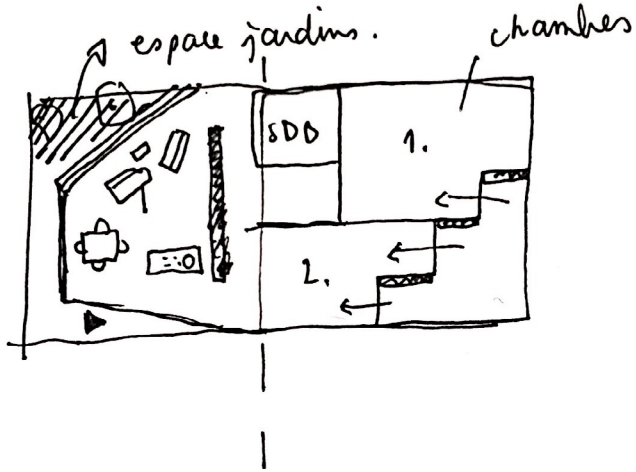 espace jardins.
chambres
SDB
1.
2.